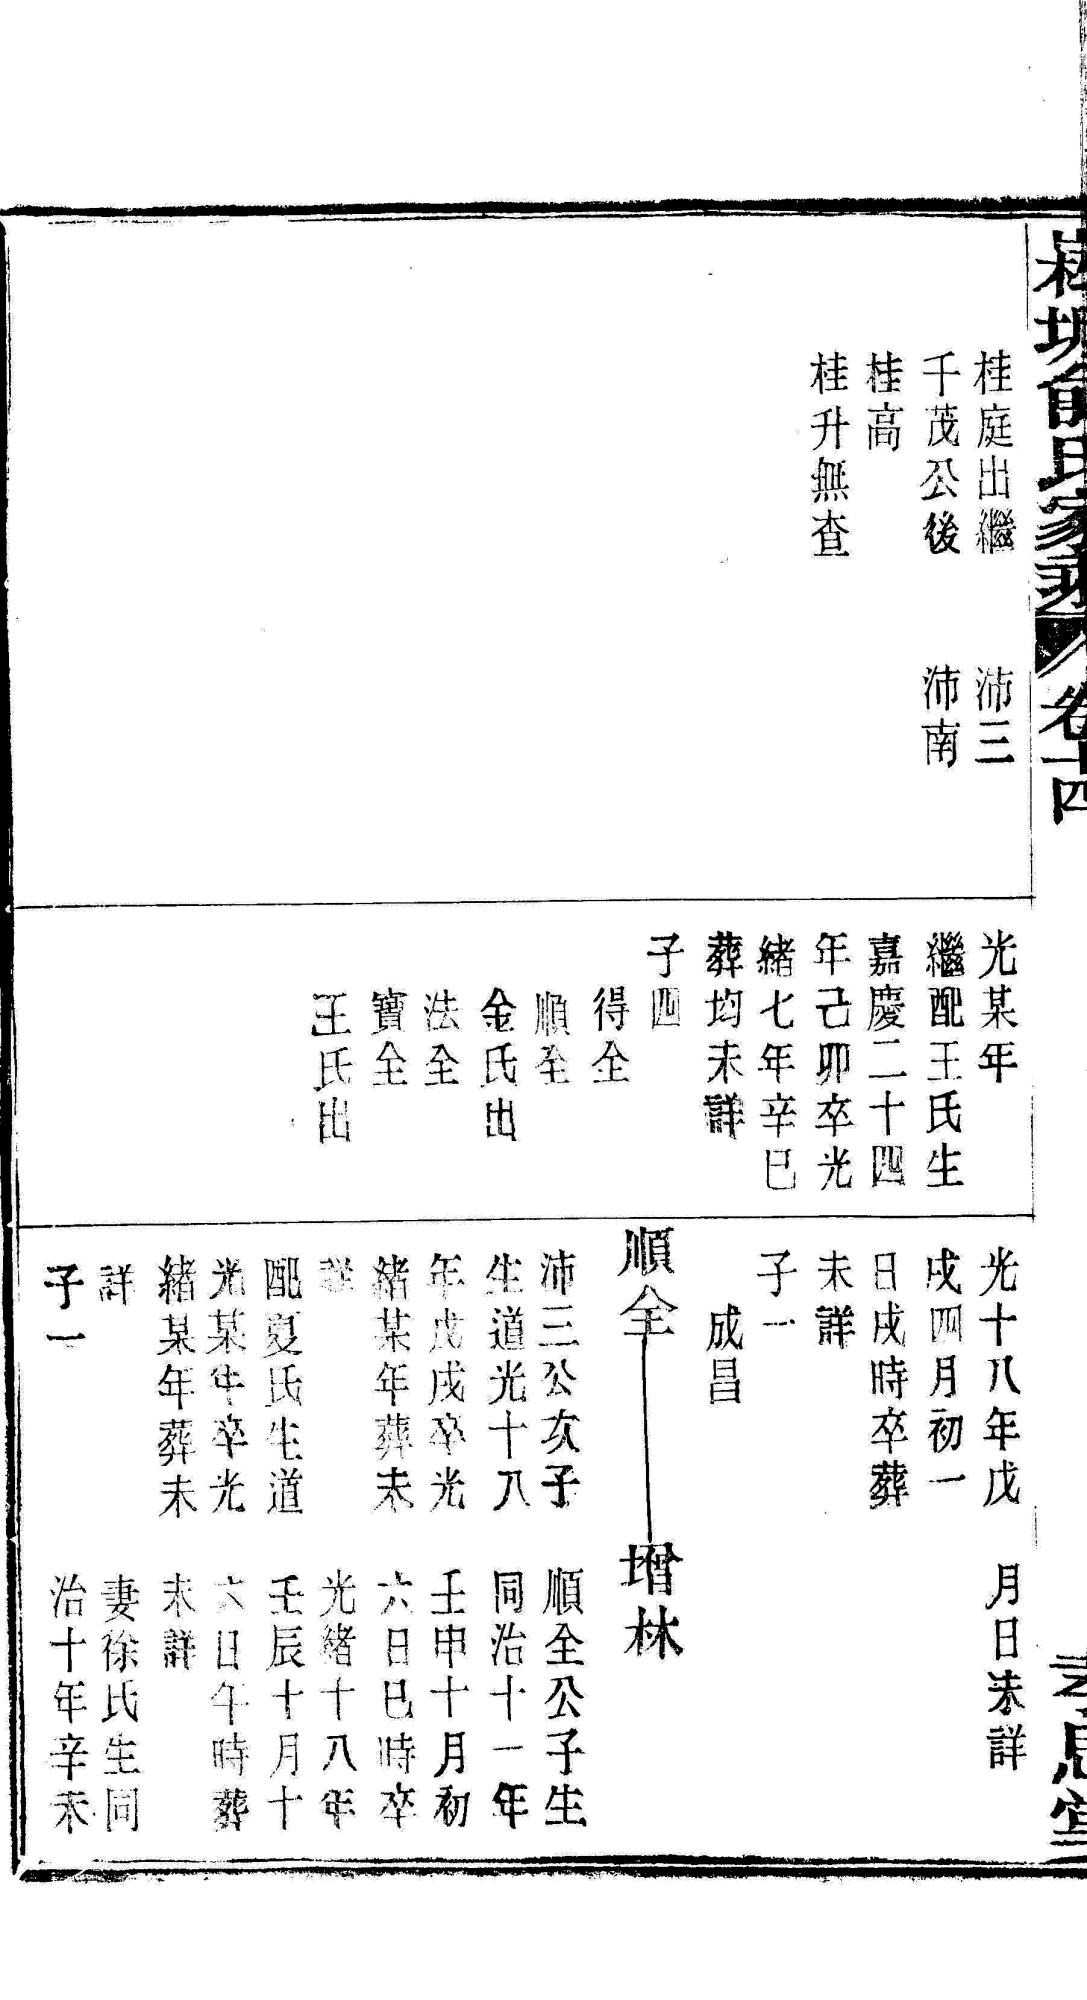 俞氏家乘 卷十四
孝思堂
桂庭出繼
千茂公後
桂高
桂升無查
沛三
沛南
光某年
繼配王氏生
嘉慶二十四
年己卯卒光
緒七年辛巳
葬均未詳
子四
得全
順全
金氏出
法全
寶全
王氏出
光十八年戊
戌四月初一
日戌時卒葬
未詳
子一
成昌
順全
沛三公次子
生道光十八
年戊戌卒光
緒某年葬未
詳
配夏氏生道
光某年卒光
緒某年葬未
詳
子一
月日未詳
增林
順全公子生
同治十一年
壬申十月初
六日巳時卒
光緒十八年
壬辰十月十
六日午時葬
未詳
妻徐氏生同
治十年辛未